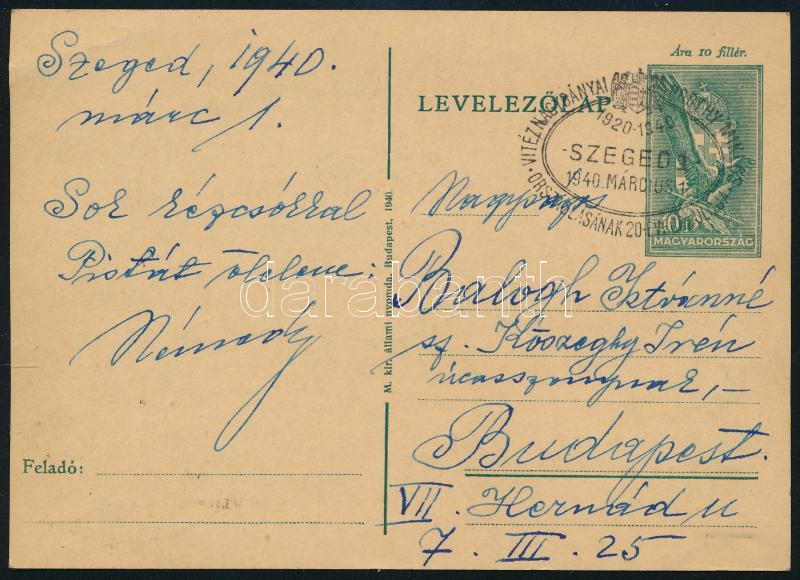 Ára 10 fillér.
LEVELEZŐLAP
VITÉZ NAGYBÁNYAI HORTHY
1920-1940
-SZEGED 1-
1940.MÁRCIUS.1.
ORSZÁGLÁSÁNAK 20-
10
MAGYARORSZÁG
Szeged, 1940.
márc 1.
Sok kézcsókkal
Pistát ölelve:
Nagyságos
Balogh Istvánné
sz. Kőszeghy Irén
úrasszonynak,-
Budapest.
VII. Hernád u
7. III. 25
Feladó:
M. kir. állami nyomda, Budapest, 1940.
darabanth